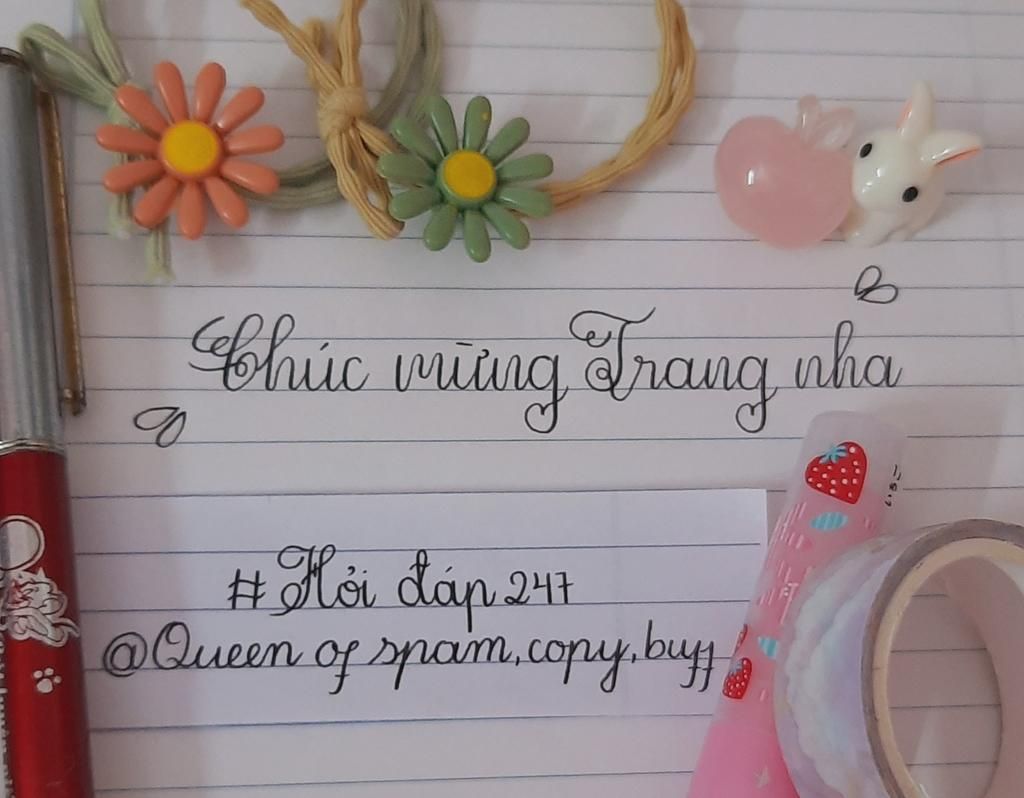 Chúc mừng Trang nha
# Hỏi đáp 247
@Queen of spam, copy, buff